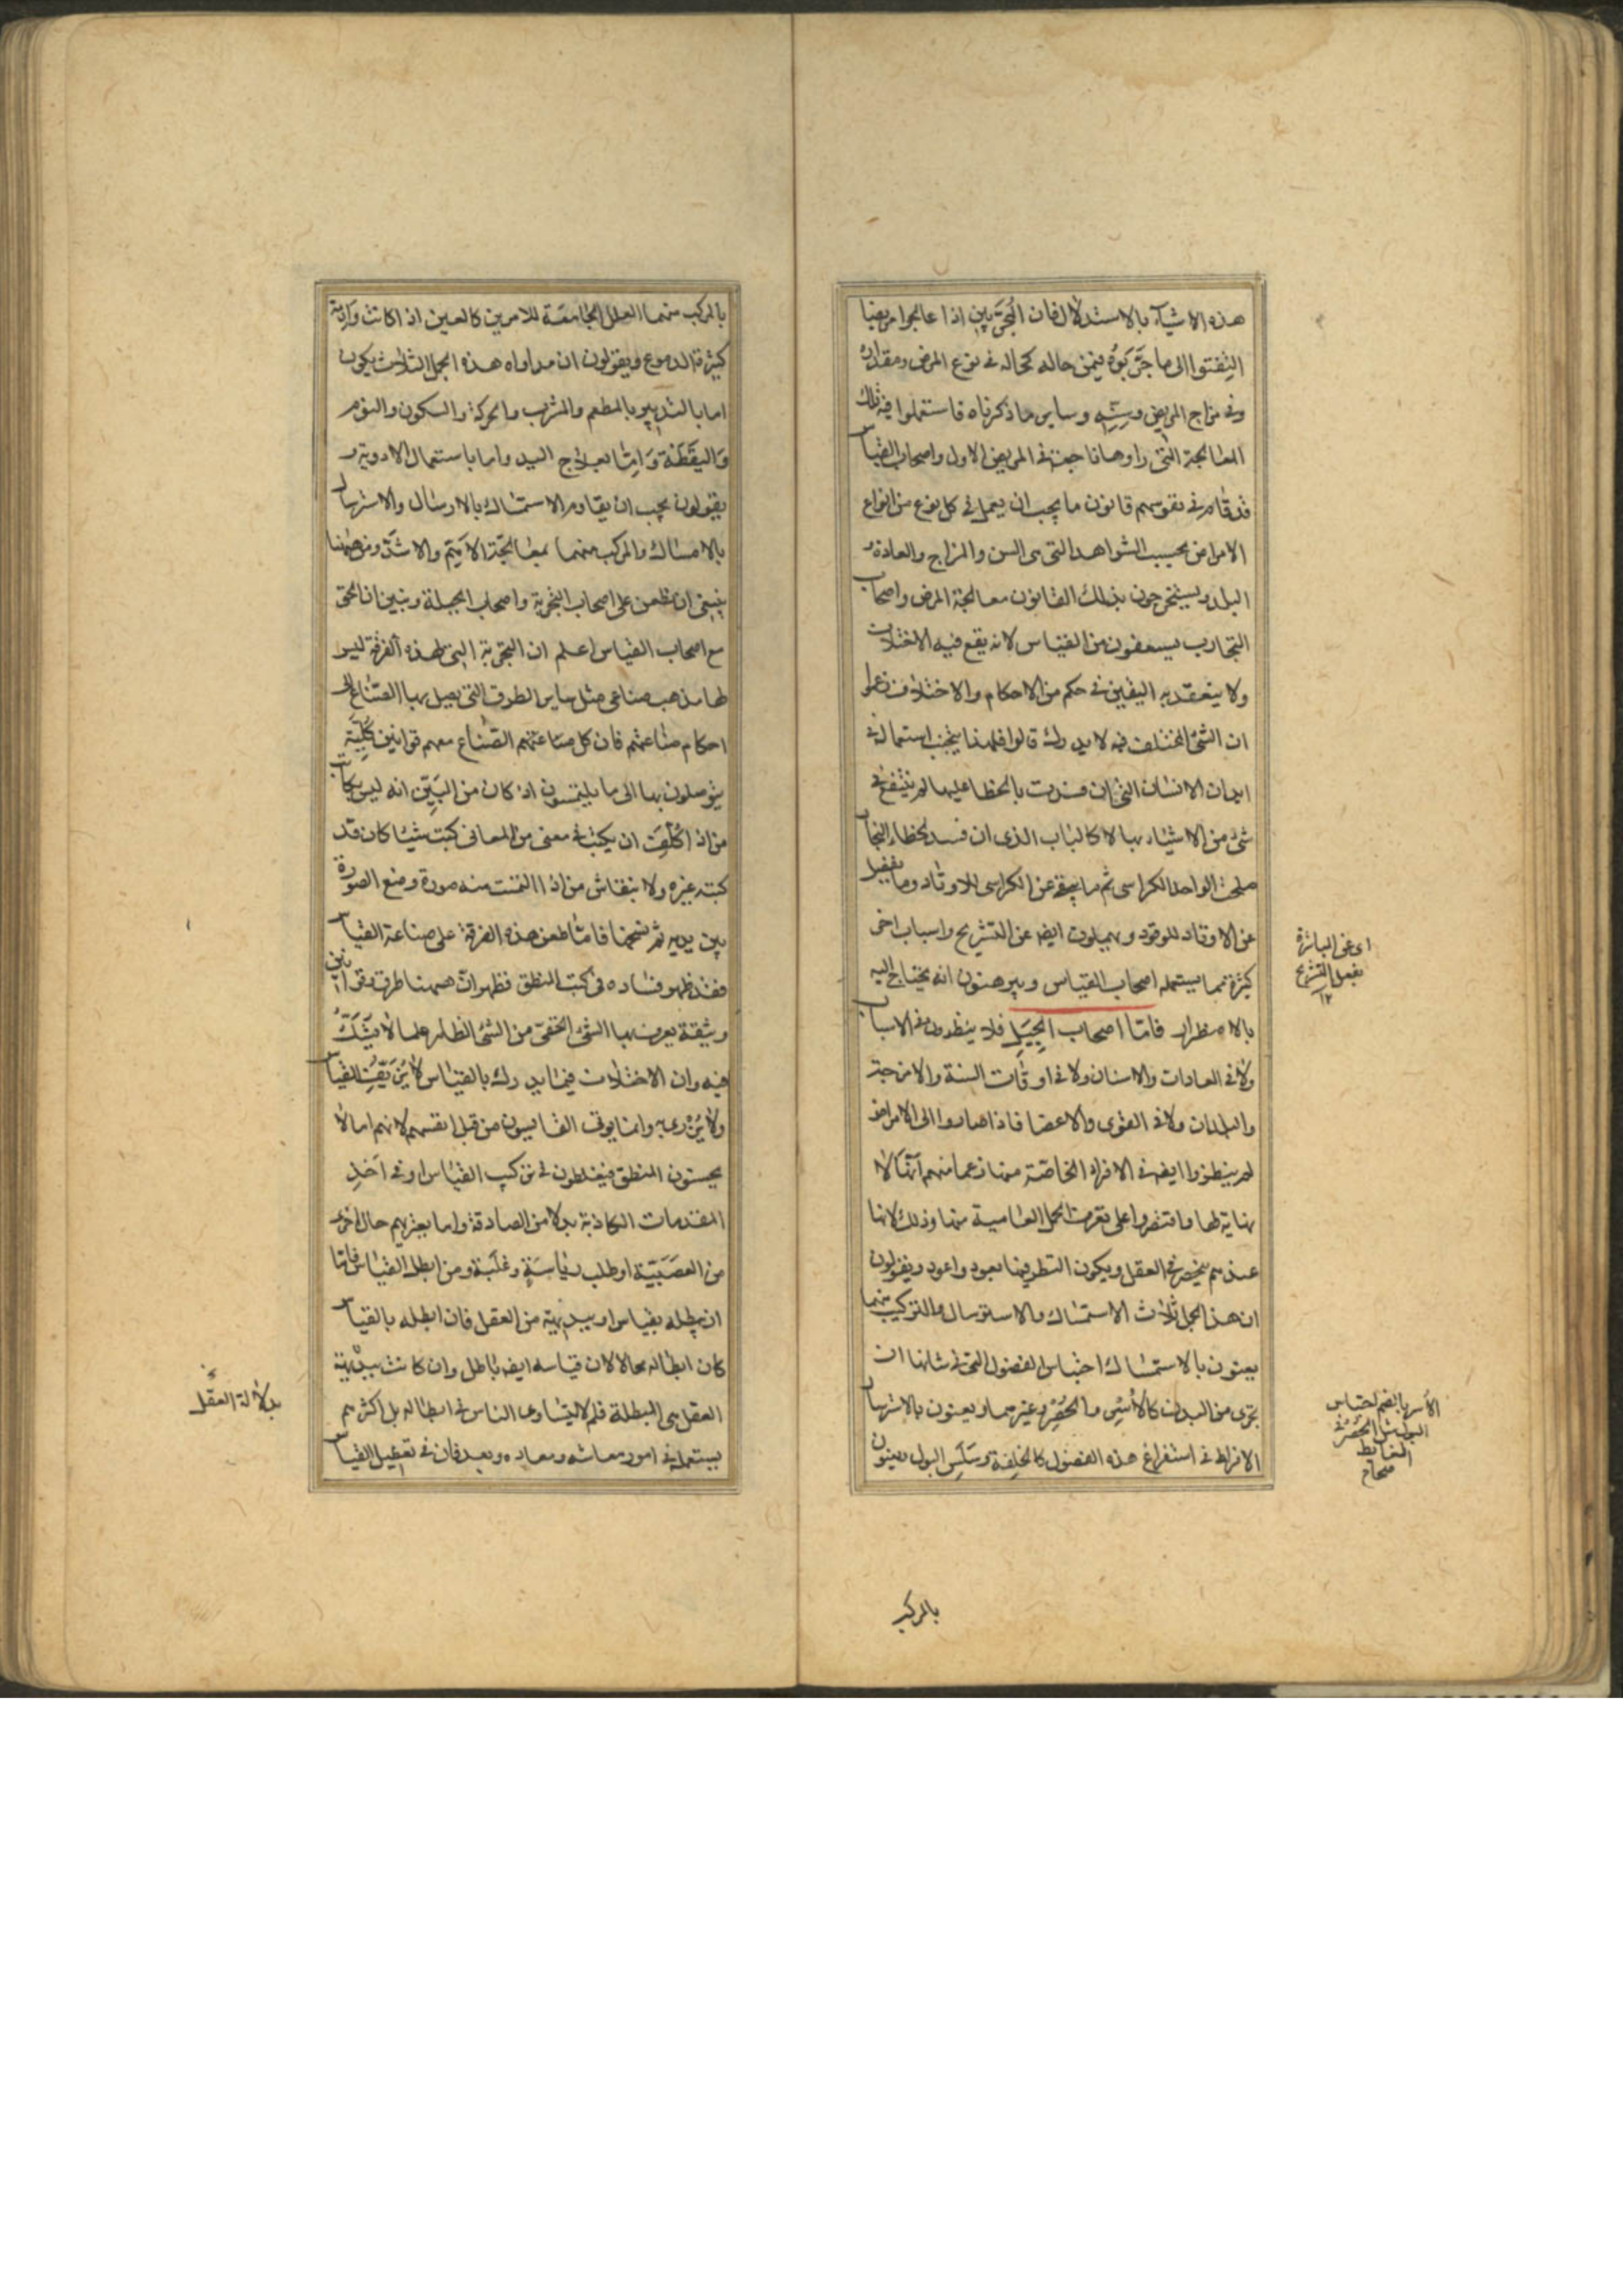 هذه الاشيآء بالاستدلال فان المُجَرِّبين اذا عالجوا مريضا
التفتوا الى ما جَرَّبُوهُ فيمن حاله كحاله فى نوع المرض ومقداره
وفى مزاج المريض وسِنِّهِ وساير ما ذكرناه فاستعملوا فيه تلك
المعالجة التى راوها ناجعة فى المريض الاول واصحاب القياس
قد قام فى نفوسهم قانون ما يجب ان يعمل فى كل نوع من انواع
الامراض بحسب الشواهد التى هى السن والمزاج والعادة و
البلد ويستخرجون بذلك القانون معالجة المرض واصحاب
التجارب يسعفون من القياس لانه يقع فيه الاختلاف
ولا ينعقد به اليقين فى حكم من الاحكام والاختلاف يدل على
ان الشئ المختلف فيه لا يدرك قالوا فلهذا يجب استعماله فى
ابدان الانسان التى ان فسدت بالخطا عليها لم ينتفع فى
شئ من الاشياء بها لا كالباب الذى ان فسد بخطاء النجار
صلحت الواحه للكراسى ثم ما يبقى عن الكراسى للاوتاد وما يفضل
عن الاوتاد للوقود ويميلون ايضا عن التشريح واسباب اخر
كثيرة مما يستعمله اصحاب القياس ويبرهنون انه يحتاج اليه
بالاضطرار فامّا اصحاب الحِيَلِ فلا ينظرون فى الاسباب
ولا فى العادات والاسنان ولا فى اوقات السنة والامزجة
والبلدان ولا فى القوى والاعضا فاذا صاروا الى الامراض
لم ينظروا ايضا فى الافراد الخاصّة منها زعما منهم انّها لا
نهاية لها واقتصروا على تعرف الجمل العامية منها وذلك لانها
عندهم ينحصر فى العقل ويكون النظر فيها يعود واعود ويقولون
ان هذه الجمل ثلاث الاستمساك والاسترسال والتركيب منهما
يعنون بالاستمساك احتباس الفضول التى فى شانها ان
تجرى من البدن كالأُسْرِ والحُصْرِ وغيرهما ويعنون بالاسترسال
الافراط فى استفراغ هذه الفضول كالخِلفة وسَلَسِ البول ويعنون
اى عن المباشرة
بفعل التشريح
١٢
الأسر بالضم احتباس
البول مثل الحُصْر فى
الغايط
صحاح
بالمركب
بالمركب منهما العلل الجامعة للامرين كالعين اذا كانت وارمة
كثيرة الدموع ويقولون ان مداواه هذه الجمل الثلاث يكون
اما بالتدبير بالمطعم والمشرب والحركة والسكون والنوم
وَاليَقَظَةِ وَامّا بعلاج اليد واما باستعمال الادوية و
يقولون يجب ان يقاوم الاستمساك بالارسال والاسترسال
بالامساك والمركب منهما بمعالجة الاَهَمِّ والاشدّ ومن ههنا
ينبغى ان نطعن على اصحاب التجربة واصحاب الحيلة ونبين ان الحق
مع اصحاب القياس اعلم ان التجربة التى لهذه الفرقة ليس
لها مذهب صناعى مثل ساير الطرق التى يصل بها الصّناع الى
احكام صناعتهم فان كل صناعة فهم الصّناع معهم قوانين كُلِيَّة
يتوصلون بها الى ما يلتمسون اذ كان من البَيِّن انه ليس بكاتب
من اذ اكُلِّفَ ان يكتب فى معنى من المعانى كتب شيئا كان قد
كتبه غيره ولا بنقاش من اذا التمست منه صورة وضع الصورة
بين يديه ثم نسخها فامّا طعن هذه الفرقة على صناعة القياس
فقد ظهر فساده فى كتب المنطق فظهر انّ ههنا طرق وقوانين
وثيقة يعرف بها الشئ الخفىّ من الشئ الظاهر علما لا يُشَكُّ
فيه وان الاختلاف فيما يدرك بالقياس لا يُزَيّف القياس
ولا يُزْرى به وانما يوتى القايسون من قبل انفسهم لانهم اما لا
يحسنون المنطق فيغلطون فى تركيب القياس او فى اَخذِ
المقدمات الكاذبة بدلا من الصادقة واما يعتريهم حال اخرى
من العصَبِيّة او طلب رياسَةٍ وغلَبة ومن ابطل القياس فامّا
ان يبطله بقياس او ببديهيّة من العقل فان ابطله بالقياس
كان ابطاله محالا لان قياسه ايضا باطل وان كانت ببديهيّة
العقل هى المبطلة فلم لا يتساوى الناس فى ابطاله بل اكثرهم
يستعمله فى امور معاشه ومعاده وبعد فان فى تعطيل القياس
دلالة العقل